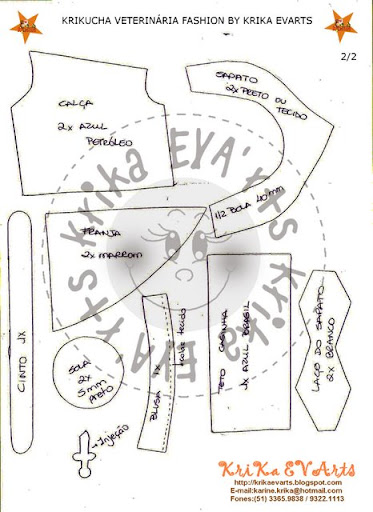 KRIKUCHA VETERINÁRIA FASHION BY KRIKA EVARTS
2/2
CALÇA
2x AZUL
PETRÓLEO
SAPATO
2x PRETO OU
TECIDO
1/2 BOLA 40mm
FRANJA
2x MARROM
CINTO 1X
SOLA
2x
5mm
PRETO
BLUSA 1x
TETO CASINHA
1x AZUL BRASIL
LAÇO DO SAPATO
2x BRANCO
→Injeção
Krika EVA'rts
Krika EVA'rts
KriKa EVArts
http://krikaevarts.blogspot.com
E-mail:karine.krika@hotmail.com
Fones:(51) 3365.9838 / 9322.1113